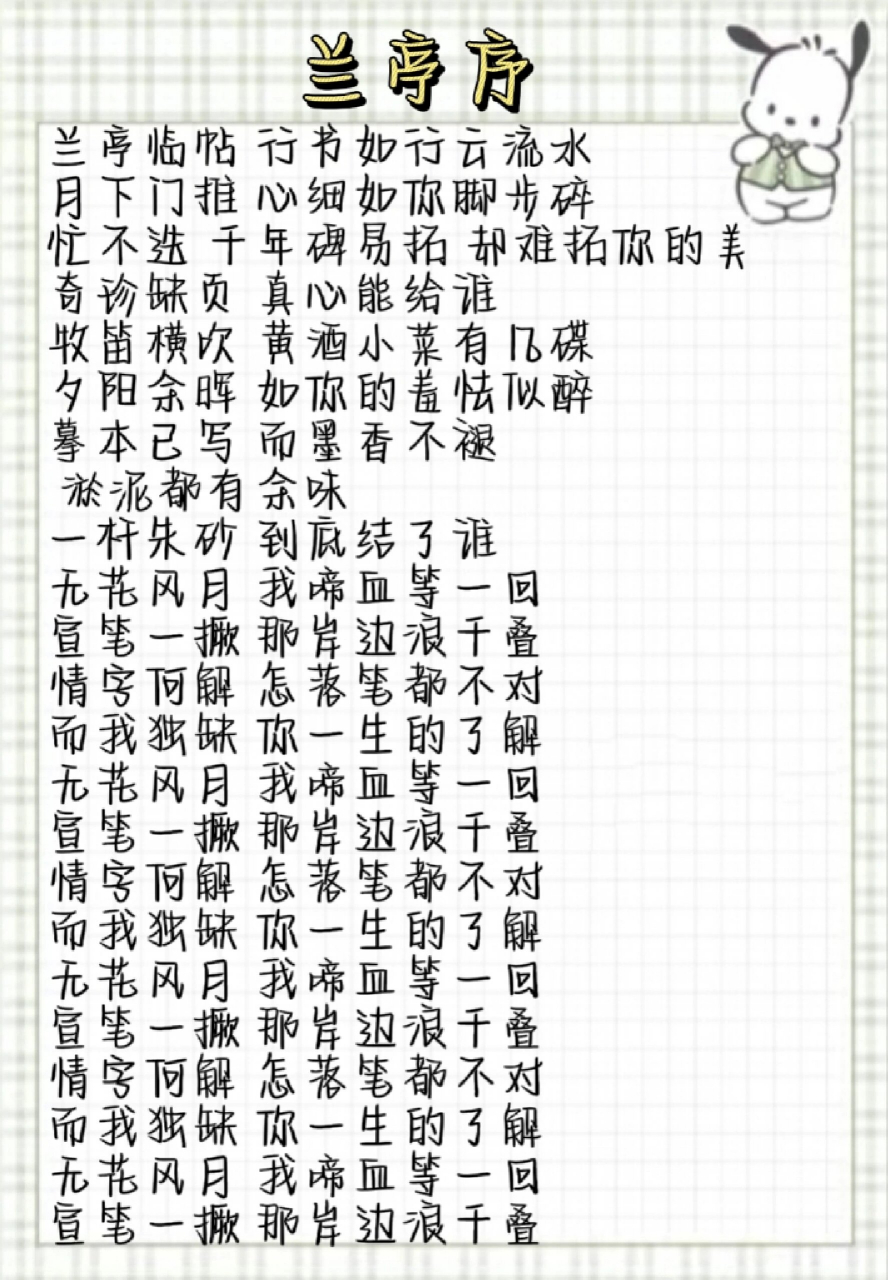 兰亭序
兰亭临帖 行书如行云流水
月下门推 心细如你脚步碎
忙不迭 千年碑易拓 却难拓你的美
奇珍缺页 真心能给谁
牧笛横吹 黄酒小菜有几碟
夕阳余晖 如你的羞怯似醉
摹本已写 而墨香不褪
淤泥都有余味
一杆朱砂 到底结了谁
无花风月 我啼血等一回
宣笔一撅 那岸边浪千叠
情字何解 怎落笔都不对
而我独缺 你一生的了解
无花风月 我啼血等一回
宣笔一撅 那岸边浪千叠
情字何解 怎落笔都不对
而我独缺 你一生的了解
无花风月 我啼血等一回
宣笔一撅 那岸边浪千叠
情字何解 怎落笔都不对
而我独缺 你一生的了解
无花风月 我啼血等一回
宣笔一撅 那岸边浪千叠